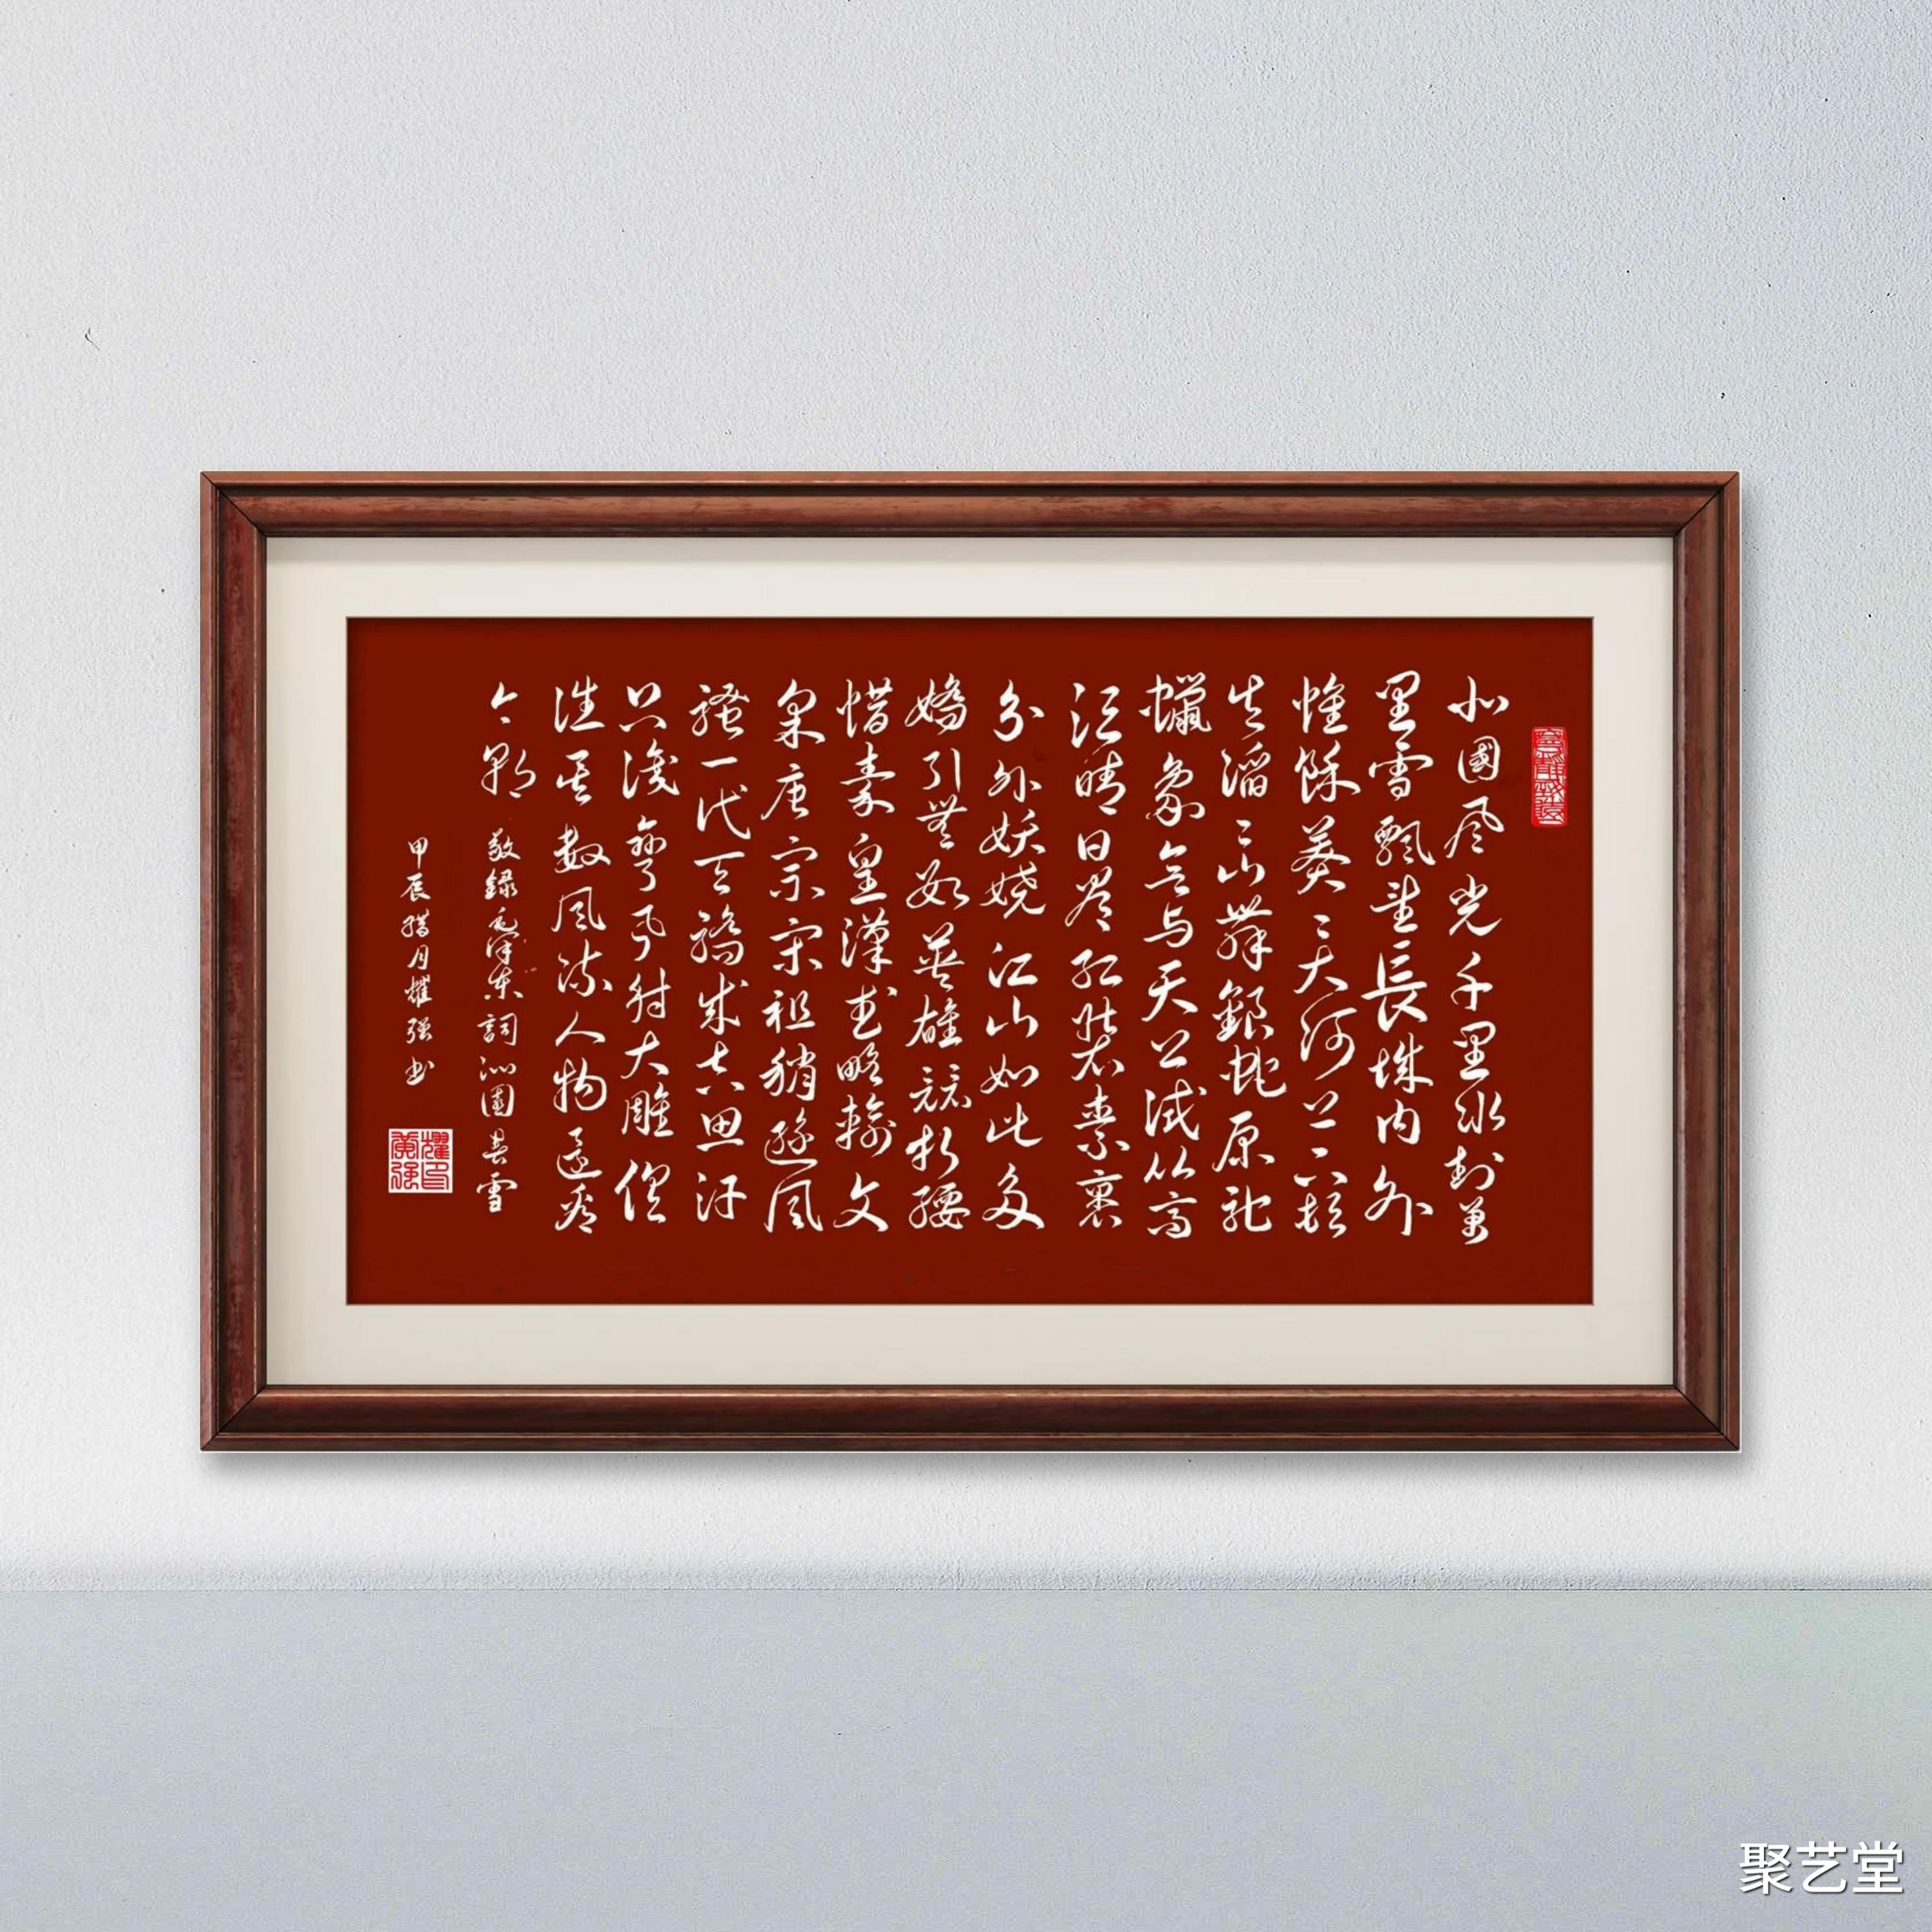 北國风光千里冰封萬
里雪飄望長城内外
惟餘莽〻大河上下頓
失滔〻山舞銀蛇原馳
蠟象欲与天公試比高
须晴日看红装素裹
分外妖娆江山如此多
嬌引無数英雄競折腰
惜秦皇漢武略輸文
采唐宗宋祖稍遜风
骚一代天骄成吉思汗
只识彎弓射大雕俱
往矣数风流人物還看
今朝 敬録毛泽东詞沁園春雪
甲辰腊月耀强书
聚艺堂